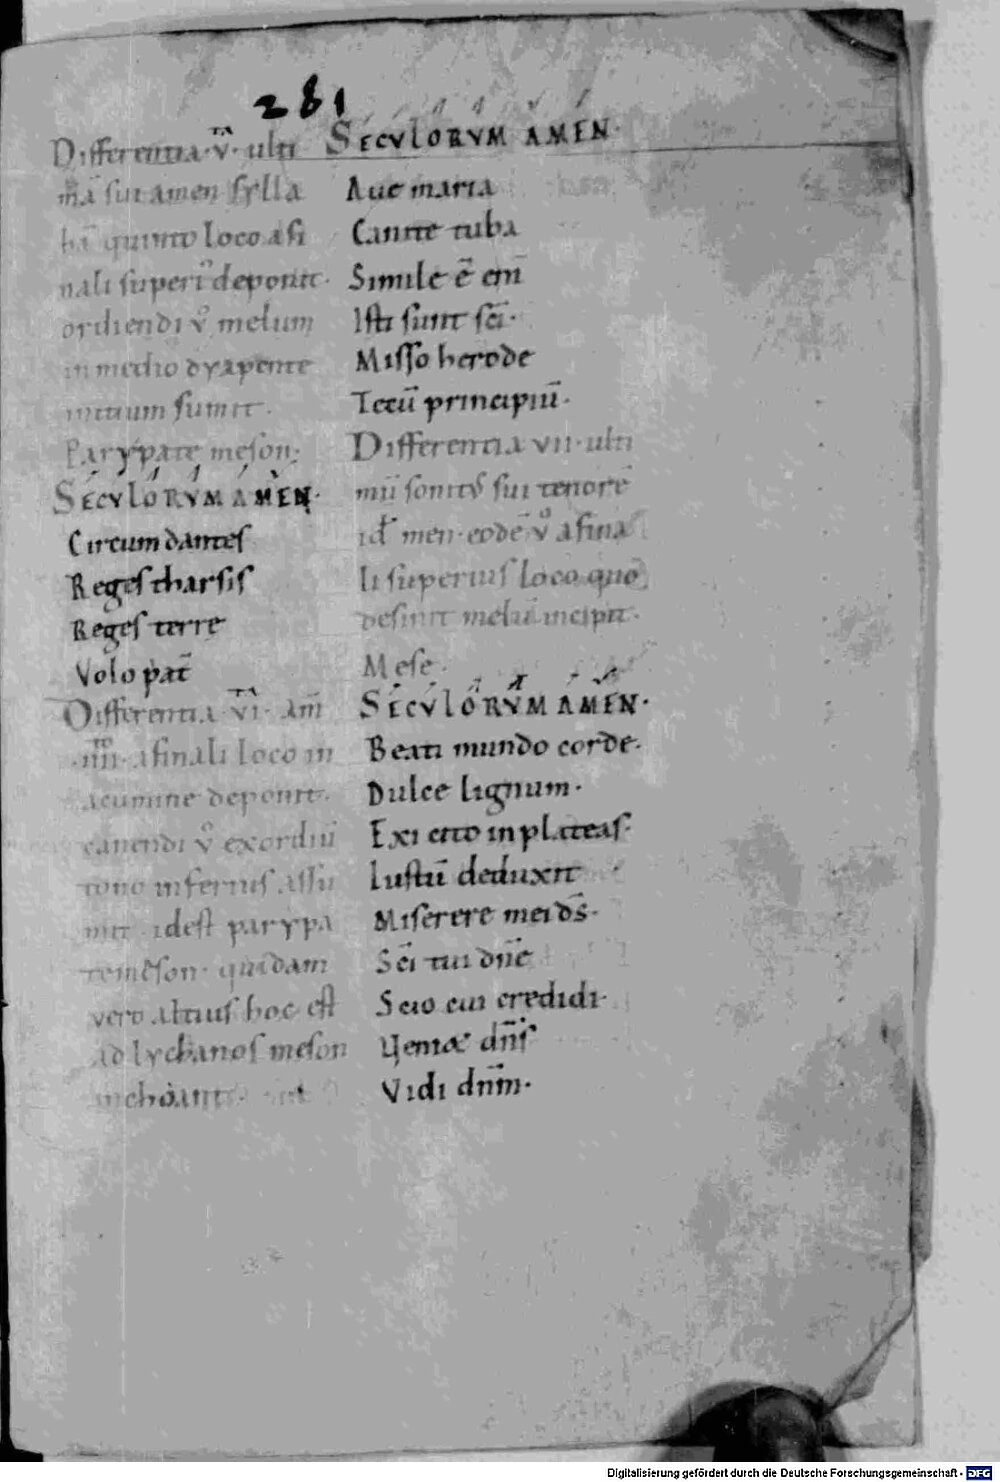 281
Differentia·v̄·ulti
mā sui amen sylla
bā quinto loco a fi
nali superi deponit·
ordiendi v̊ melum
in medio dyapente
initium sumit·
Parypate meson·
SECVLORVM AMEN·
Circumdantes
Reges tharsis
Reges terre
Volo pat̄
Differentia·vi· am̄
·iiii· a finali loco in
acumine deponit·
canendi v̊ exordiū
tono inferius assu
mit· idest parypa
te meson· quidam
vero altius hoc est
ad lychanos meson
inchoant·
SECVLORVM AMEN·
Aue maria
Canite tuba
Simile ē eni̅
Isti sunt sc̄i·
Misso herode
Tecū principiū·
Differentia vii· ulti
mū sonitū sui tenorē
id̄ men· eodē v̊ a fina
li superius loco quo
desinit melū incipit·
Mese·
SECVLORVM AMEN·
Beati mundo corde·
Dulce lignum·
Exi cito in plateas·
Iustū deduxit
Miserere mei d̄s·
Sc̄i tui dn̄e
Scio cui credidi·
Uenit dn̄s
Vidi dn̄m·
Digitalisierung gefördert durch die Deutsche Forschungsgemeinschaft - DFG